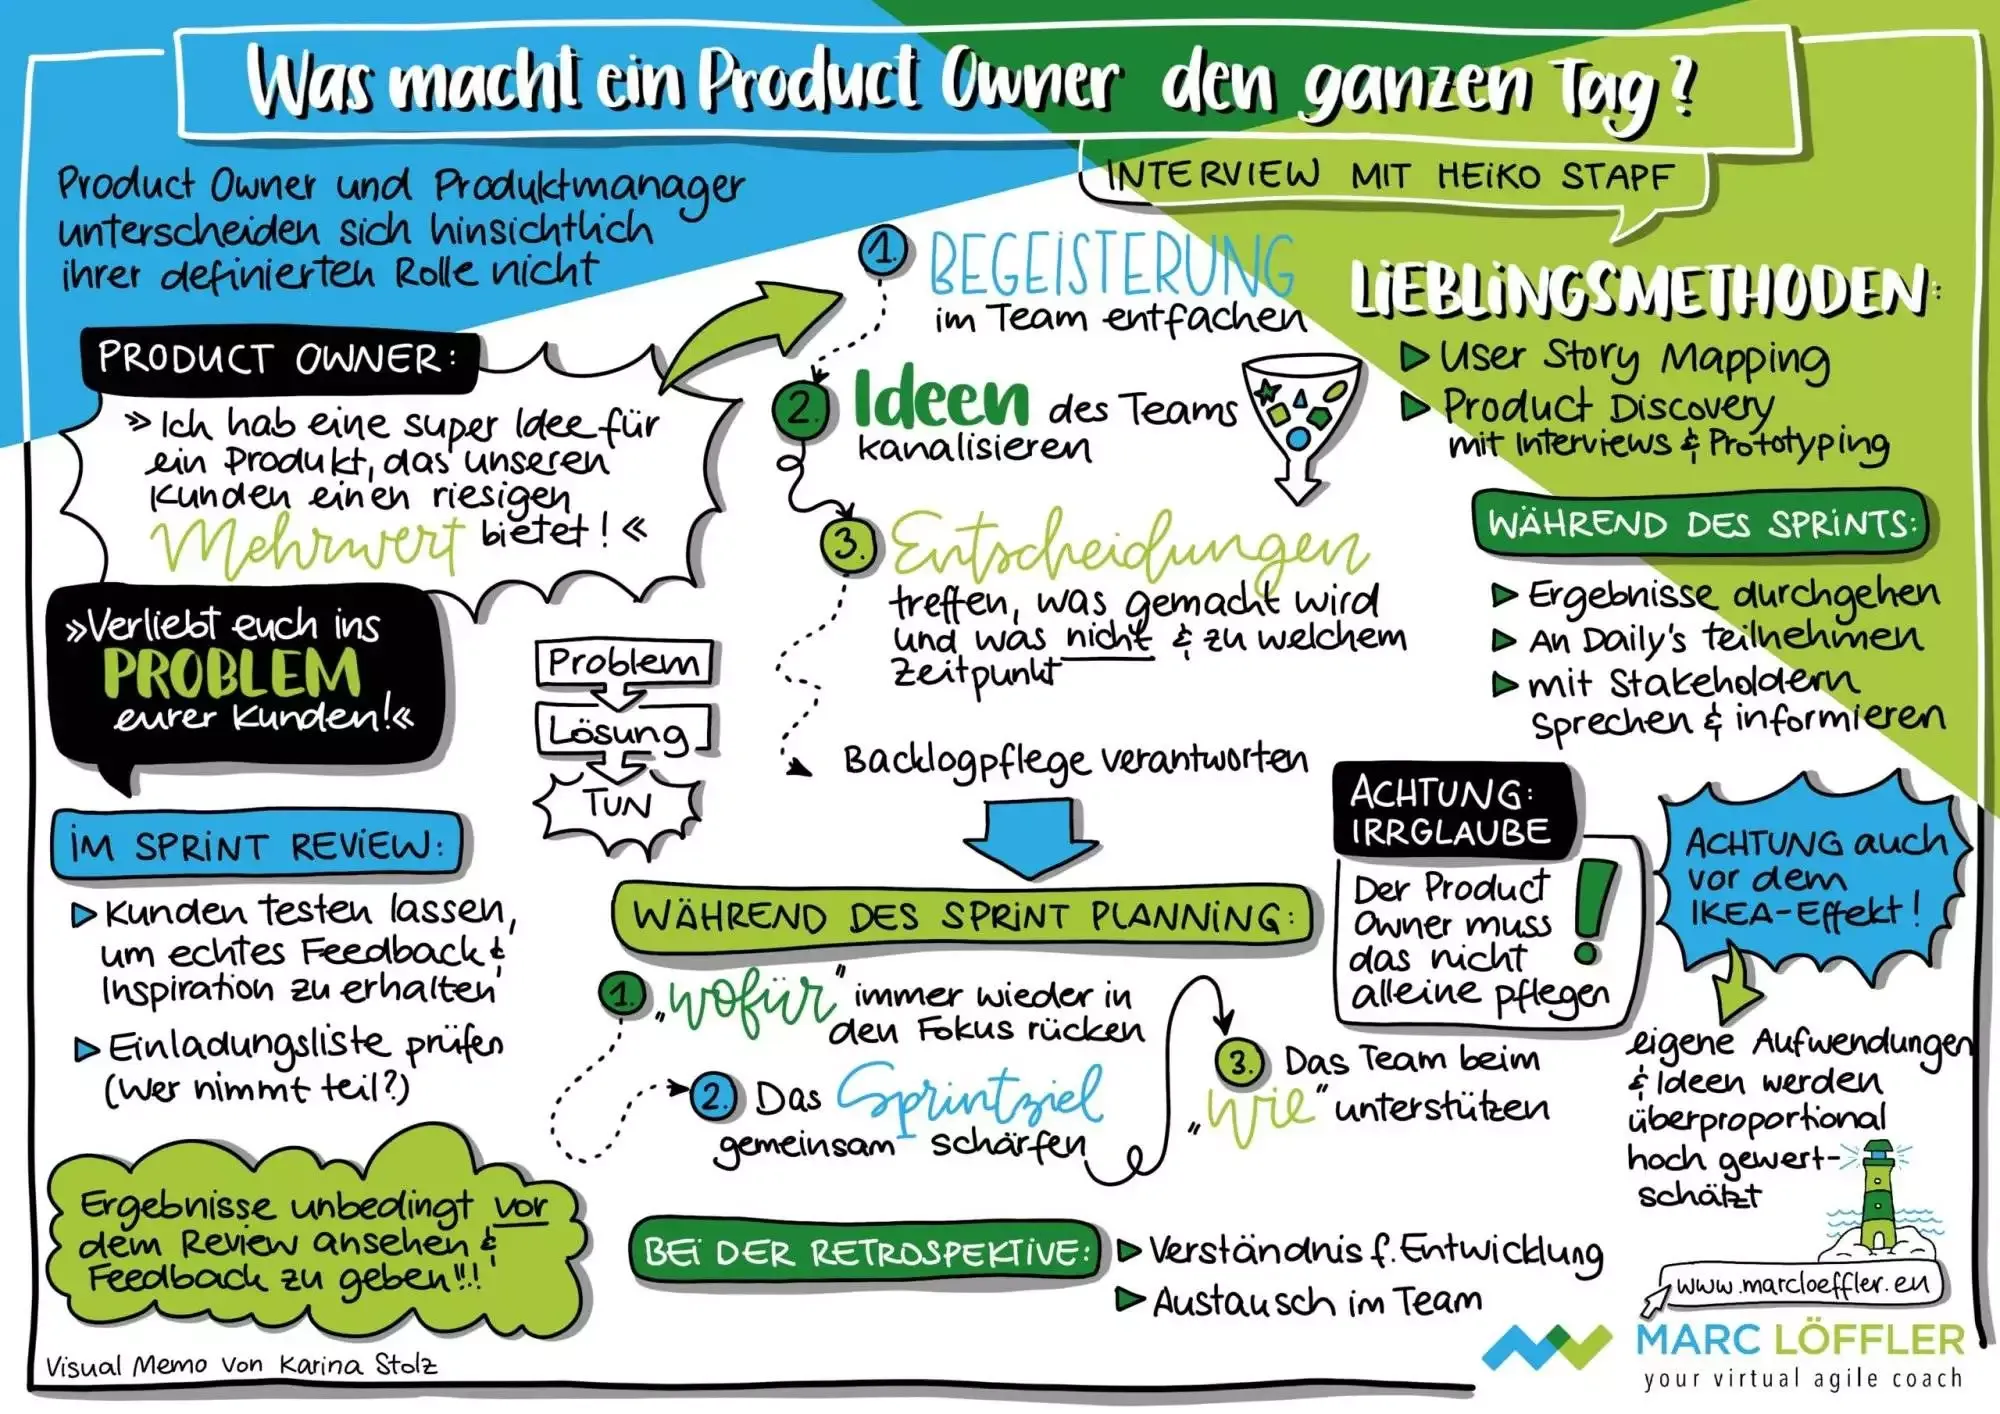 Was macht ein Product Owner den ganzen Tag?
INTERVIEW MIT HEIKO STAPF
Product Owner und Produktmanager
unterscheiden sich hinsichtlich
ihrer definierten Rolle nicht
PRODUCT OWNER:
»Ich hab eine super Idee für
ein Produkt, das unseren
Kunden einen riesigen
Mehrwert bietet! «
»Verliebt euch ins
PROBLEM
eurer Kunden!«
Problem
Lösung
TUN
1. BEGEISTERUNG
im Team entfachen
2. Ideen des Teams
kanalisieren
3. Entscheidungen
treffen, was gemacht wird
und was nicht & zu welchem
Zeitpunkt
Backlogpflege verantworten
LIEBLINGSMETHODEN:
User Story Mapping
Product Discovery
mit Interviews & Prototyping
WÄHREND DES SPRINTS:
Ergebnisse durchgehen
An Daily's teilnehmen
mit Stakeholdern
sprechen & informieren
ACHTUNG:
IRRGLAUBE
Der Product
Owner muss
das nicht
alleine pflegen
!
ACHTUNG auch
vor dem
IKEA-Effekt!
eigene Aufwendungen
& Ideen werden
überproportional
hoch gewert-
schätzt
IM SPRINT REVIEW:
Kunden testen lassen,
um echtes Feedback &
Inspiration zu erhalten
Einladungsliste prüfen
(Wer nimmt teil?)
Ergebnisse unbedingt vor
dem Review ansehen &
Feedback zu geben!!!
WÄHREND DES SPRINT PLANNING:
1. „wofür" immer wieder in
den Fokus rücken
2. Das Sprintziel
gemeinsam schärfen
3. Das Team beim
„wie" unterstützen
BEI DER RETROSPEKTIVE:
Verständnis f. Entwicklung
Austausch im Team
www.marcloeffler.eu
MARC LÖFFLER
your virtual agile coach
Visual Memo von Karina Stolz